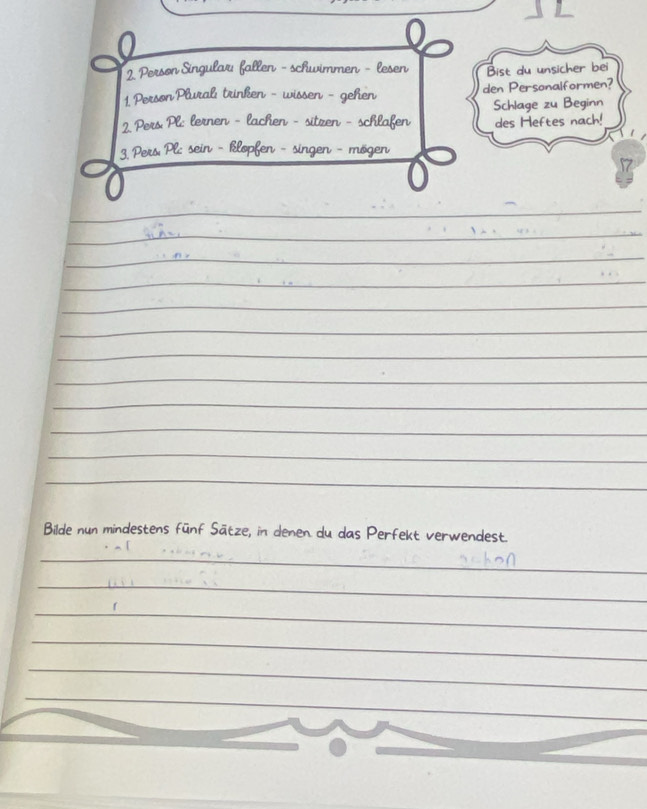 2. Person Singular: fallen - schwimmen - lesen
1. Person Plural: trinken - wissen - gehen
2. Pers. Pl.: lernen - lachen - sitzen - schlafen
3. Pers. Pl.: sein - klopfen - singen - mögen
Bist du unsicher bei
den Personalformen?
Schlage zu Beginn
des Heftes nach!
Bilde nun mindestens fünf Sätze, in denen du das Perfekt verwendest.
schon